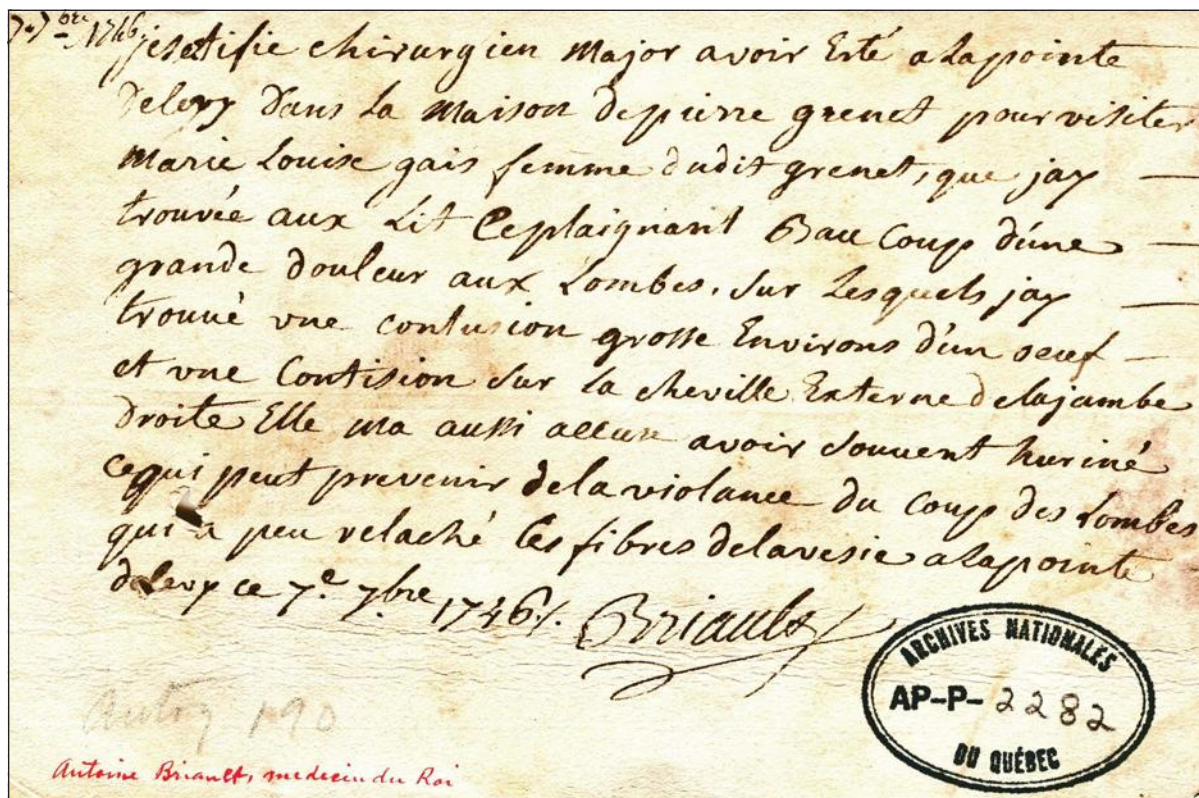 7-7bre 1746
jesetifie chirurgien Major avoir Esté alapointe
Delevy Dans La Maison depierre grenet pour visiter
Marie Louise gais femme dudit grenet, que jay
trouvée aux Lit Ceplaignant Bau Coup d'une
grande douleur aux Lombes, Sur Lesquels jay
trouué vne contusion grosse Environs d'un oeuf
et vne Contision Sur la cheville Externe delajambe
Droite Elle ma aussi avoir Souuent huriné
cequi peut prevenir delaviolance du Coup des Lombes
qui a peu relaché les fibres delavesie alapointe
delevy ce 7e 7bre 1746 Briault
ARCHIVES NATIONALES
AP-P-2282
DU QUÉBEC
190
Antoine Briault, medecin du Roi